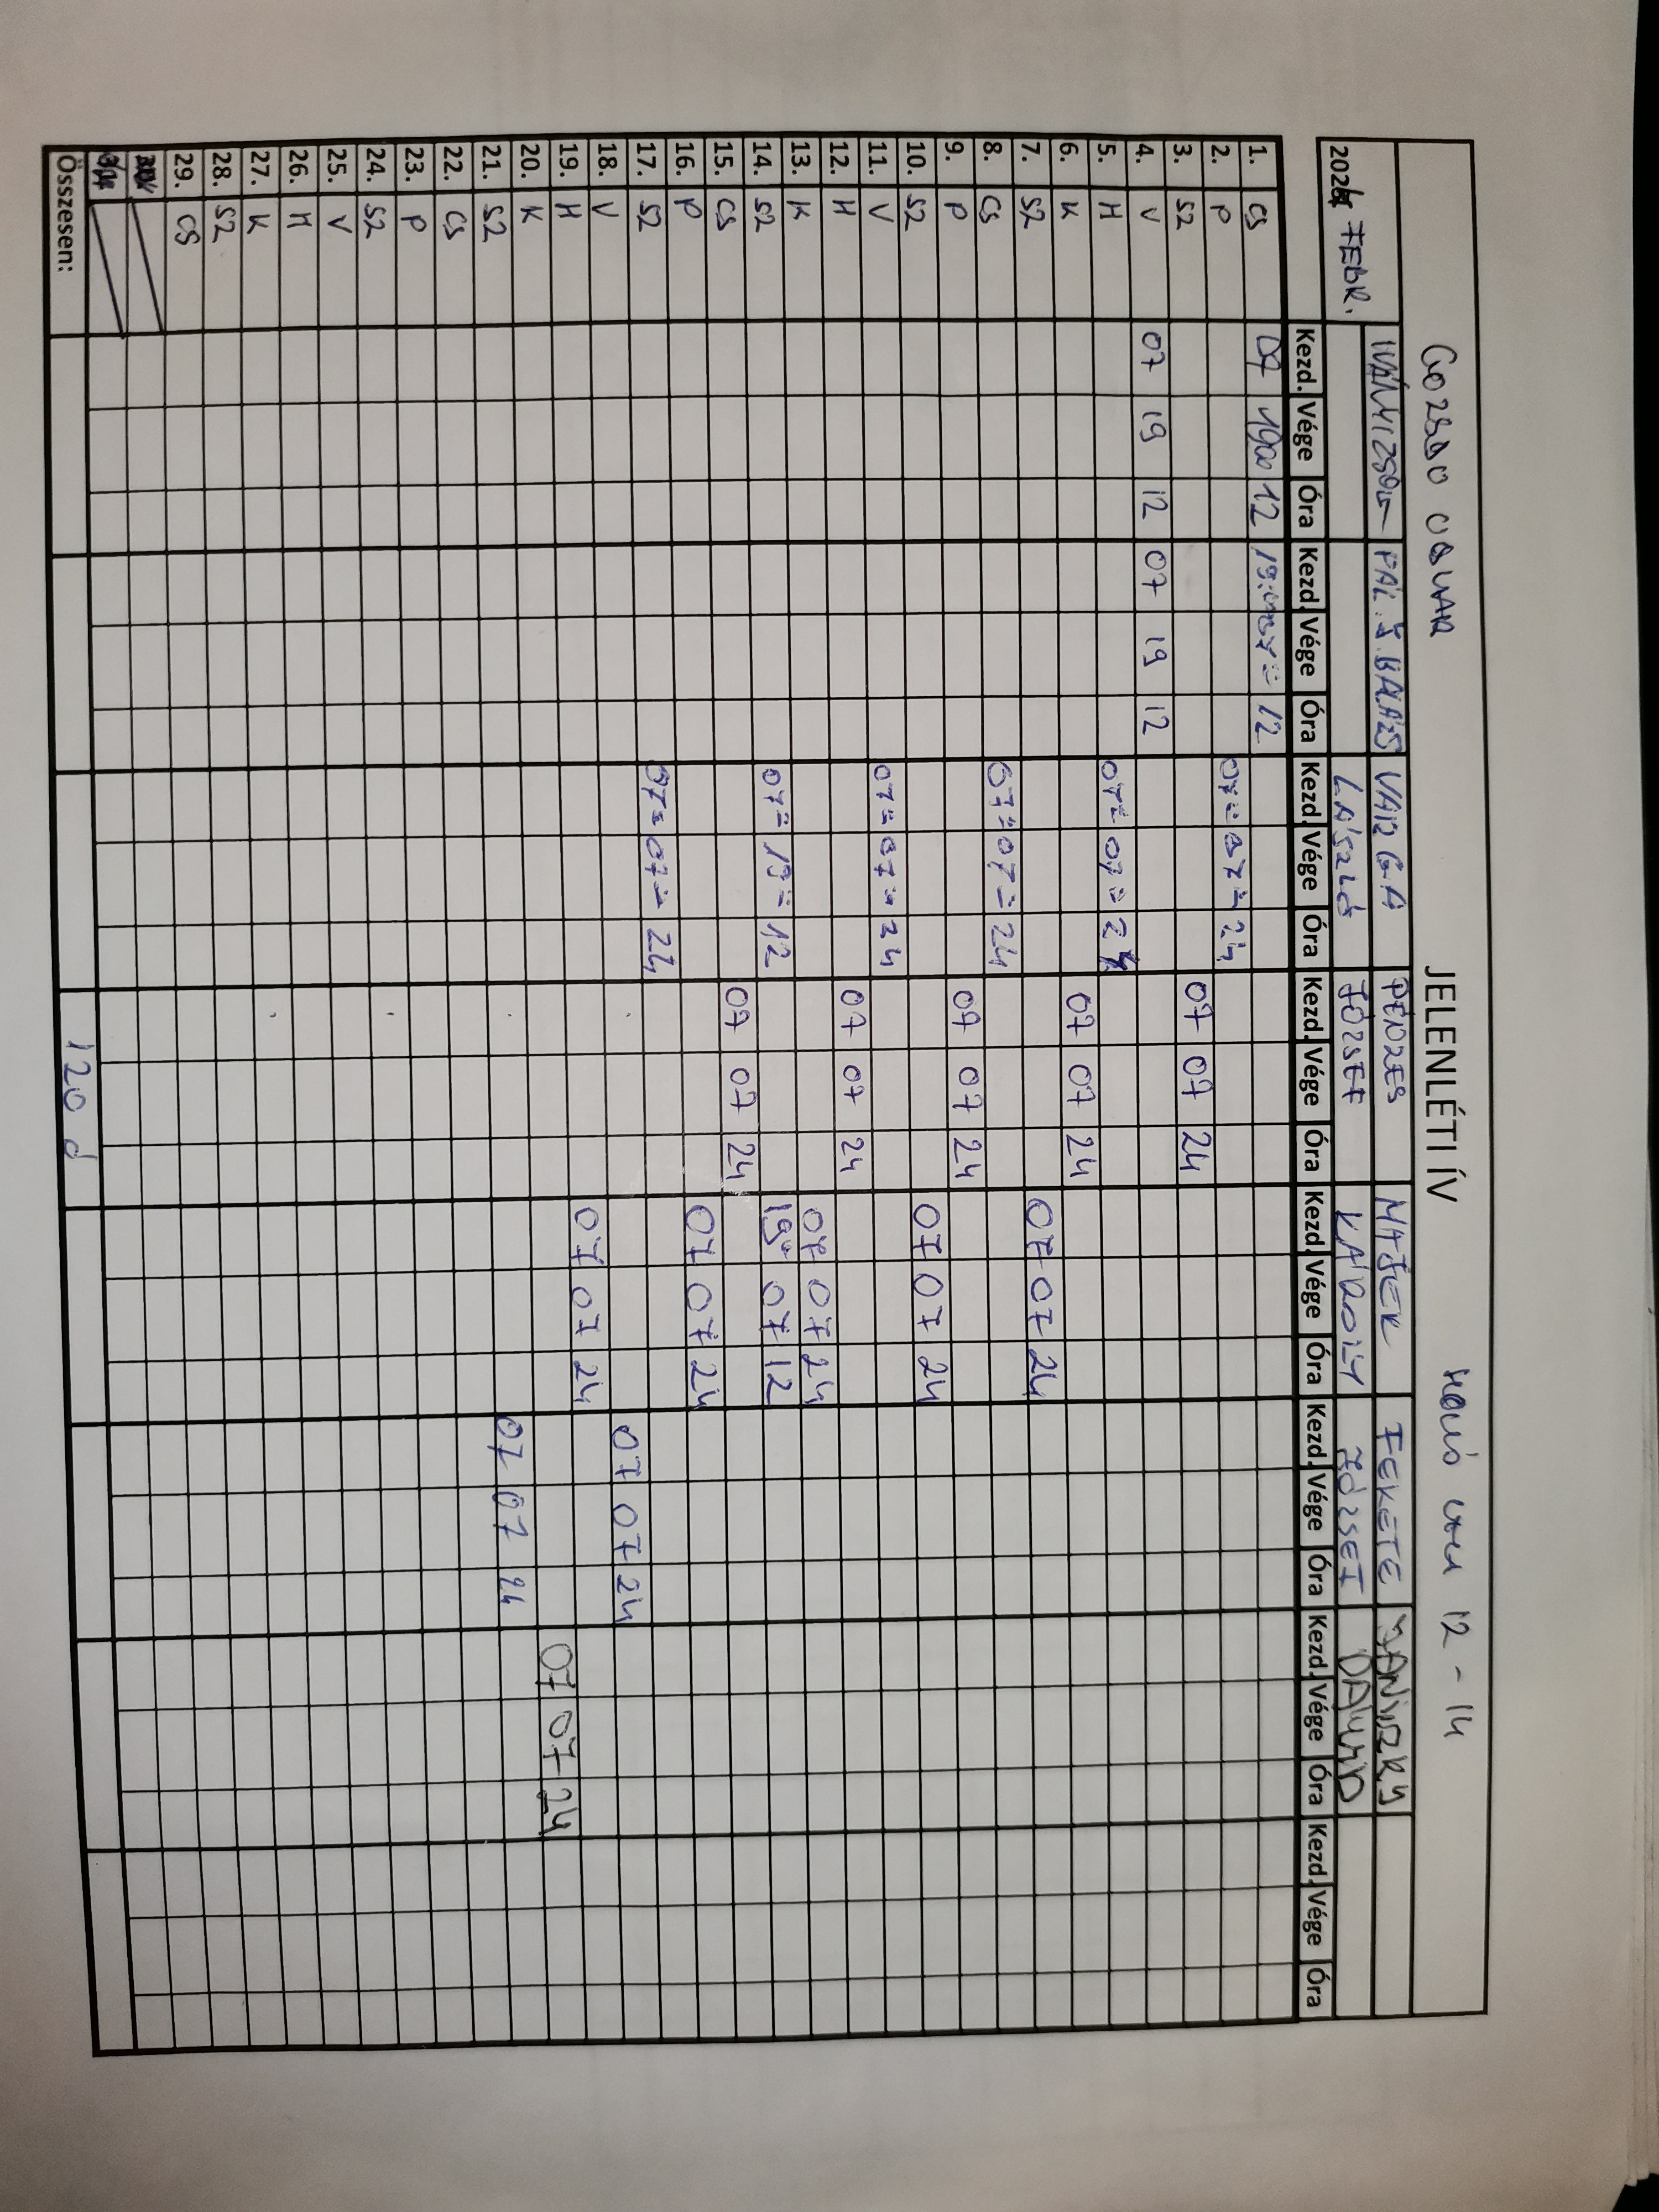 JELENLÉTI ÍV 12 - 14
2024 FEBR. PÁL. S. BALÁZS VARGA PÉNZES MAJER FEKETE JANINSZKY
LÁSZLÓ JÓZSEF KÁROLY JÓZSEF DÁVID
Kezd. Vége Óra Kezd. Vége Óra Kezd. Vége Óra Kezd. Vége Óra Kezd. Vége Óra Kezd. Vége Óra Kezd. Vége Óra Kezd. Vége Óra
1. CS 07 19 12 19 07 12
2. P 07 07 24
3. SZ 07 07 24
4. V 07 19 12 07 19 12
5. H 07 07 24
6. K 07 07 24
7. SZ 07 07 24
8. CS 07 07 24
9. P 07 07 24
10. SZ 07 07 24
11. V 07 07 24
12. H 07 07 24
13. K 07 07 24
14. SZ 07 19 12 19 07 12
15. CS 07 07 24
16. P 07 07 24
17. SZ 07 07 24
18. V 07 07 24
19. H 07 07 24
20. K 07 07 24
21. SZ 07 07 24
22. CS
23. P
24. SZ
25. V
26. H
27. K
28. SZ
29. CS
Összesen: 120 ó